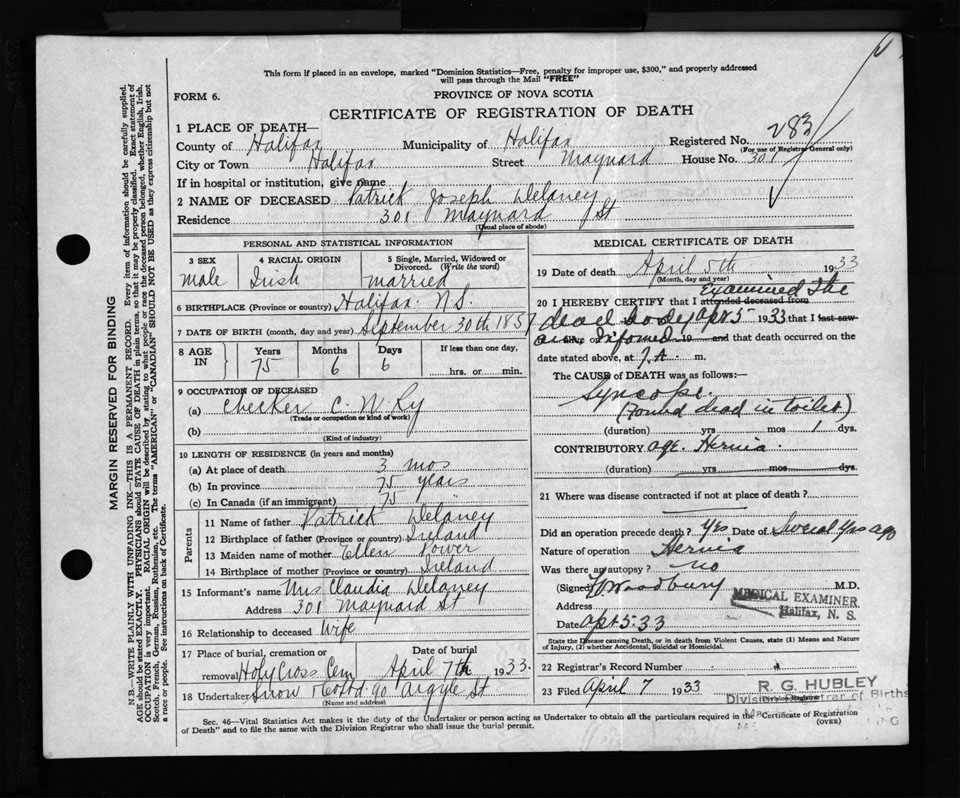 This form if placed in an envelope, marked "Dominion Statistics—Free, penalty for improper use, $300," and properly addressed
will pass through the Mail "FREE"
FORM 6.
PROVINCE OF NOVA SCOTIA
CERTIFICATE OF REGISTRATION OF DEATH
1 PLACE OF DEATH—
County of Halifax Municipality of Halifax Registered No. 283
(For use of Registrar General only)
City or Town Halifax Street Maynard House No. 301
If in hospital or institution, give name
2 NAME OF DECEASED Patrick Joseph Delaney
Residence 301 Maynard St
(Usual place of abode)
PERSONAL AND STATISTICAL INFORMATION
3 SEX 4 RACIAL ORIGIN 5 Single, Married, Widowed or
Divorced. (Write the word)
male Irish married
6 BIRTHPLACE (Province or country) Halifax N.S.
7 DATE OF BIRTH (month, day and year) September 30th 1857
8 AGE IN Years Months Days If less than one day,
75 6 6 hrs. or min.
9 OCCUPATION OF DECEASED
(a) Checker C. N. Ry
(Trade or occupation or kind of work)
(b)
(Kind of industry)
10 LENGTH OF RESIDENCE (in years and months)
(a) At place of death 3 mos
(b) In province 75 years
(c) In Canada (if an immigrant) 75
Parents
11 Name of father Patrick Delaney
12 Birthplace of father (Province or country) Ireland
13 Maiden name of mother Ellen Power
14 Birthplace of mother (Province or country) Ireland
15 Informant's name Mrs Claudia Delaney
Address 301 Maynard St
16 Relationship to deceased Wife
17 Place of burial, cremation or Date of burial
removal Holy Cross Cem April 7th 1933.
18 Undertaker Snow & Co Ltd 90 Argyle St
(Name and address)
MEDICAL CERTIFICATE OF DEATH
19 Date of death April 5th 1933
(Month, day and year)
20 I HEREBY CERTIFY that I attended deceased from Examined the
dead body Apr 5 1933 that I last saw
alive on Informed 19 and that death occurred on the
date stated above, at 7.A. m.
The CAUSE of DEATH was as follows:—
Syncope.
(Found dead in toilet)
(duration) yrs mos 1 dys.
CONTRIBUTORY age. Hernia.
(duration) yrs mos dys.
21 Where was disease contracted if not at place of death?
Did an operation precede death? Yes Date of Several yrs ago
Nature of operation Hernia
Was there an autopsy? no
(Signed) Woodbury M.D.
Address MEDICAL EXAMINER
Halifax, N. S.
Date Apr. 5. 33
State the Disease causing Death, or in death from Violent Causes, state (1) Means and Nature
of Injury, (2) whether Accidental, Suicidal or Homicidal.
22 Registrar's Record Number
23 Filed April 7 1933 R. G. HUBLEY
Division Registrar of Births
Division Registrar
Sec. 46—Vital Statistics Act makes it the duty of the Undertaker or person acting as Undertaker to obtain all the particulars required in the "Certificate of Registration
of Death" and to file the same with the Division Registrar who shall issue the burial permit.
(OVER)
MARGIN RESERVED FOR BINDING
N.B.—WRITE PLAINLY WITH UNFADING INK—THIS IS A PERMANENT RECORD. Every item of information should be carefully supplied.
AGE should be stated EXACTLY. PHYSICIANS should STATE CAUSE OF DEATH in plain terms, so that it may be properly classified. Exact statement of
OCCUPATION is very important. RACIAL ORIGIN will be described by stating to what people or race the deceased person belonged, whether English, Irish,
Scotch, French, German, Russian, Ruthenian, etc. The terms "AMERICAN" or "CANADIAN" SHOULD NOT BE USED as they express citizenship but not
a race or people. See instructions on back of Certificate.